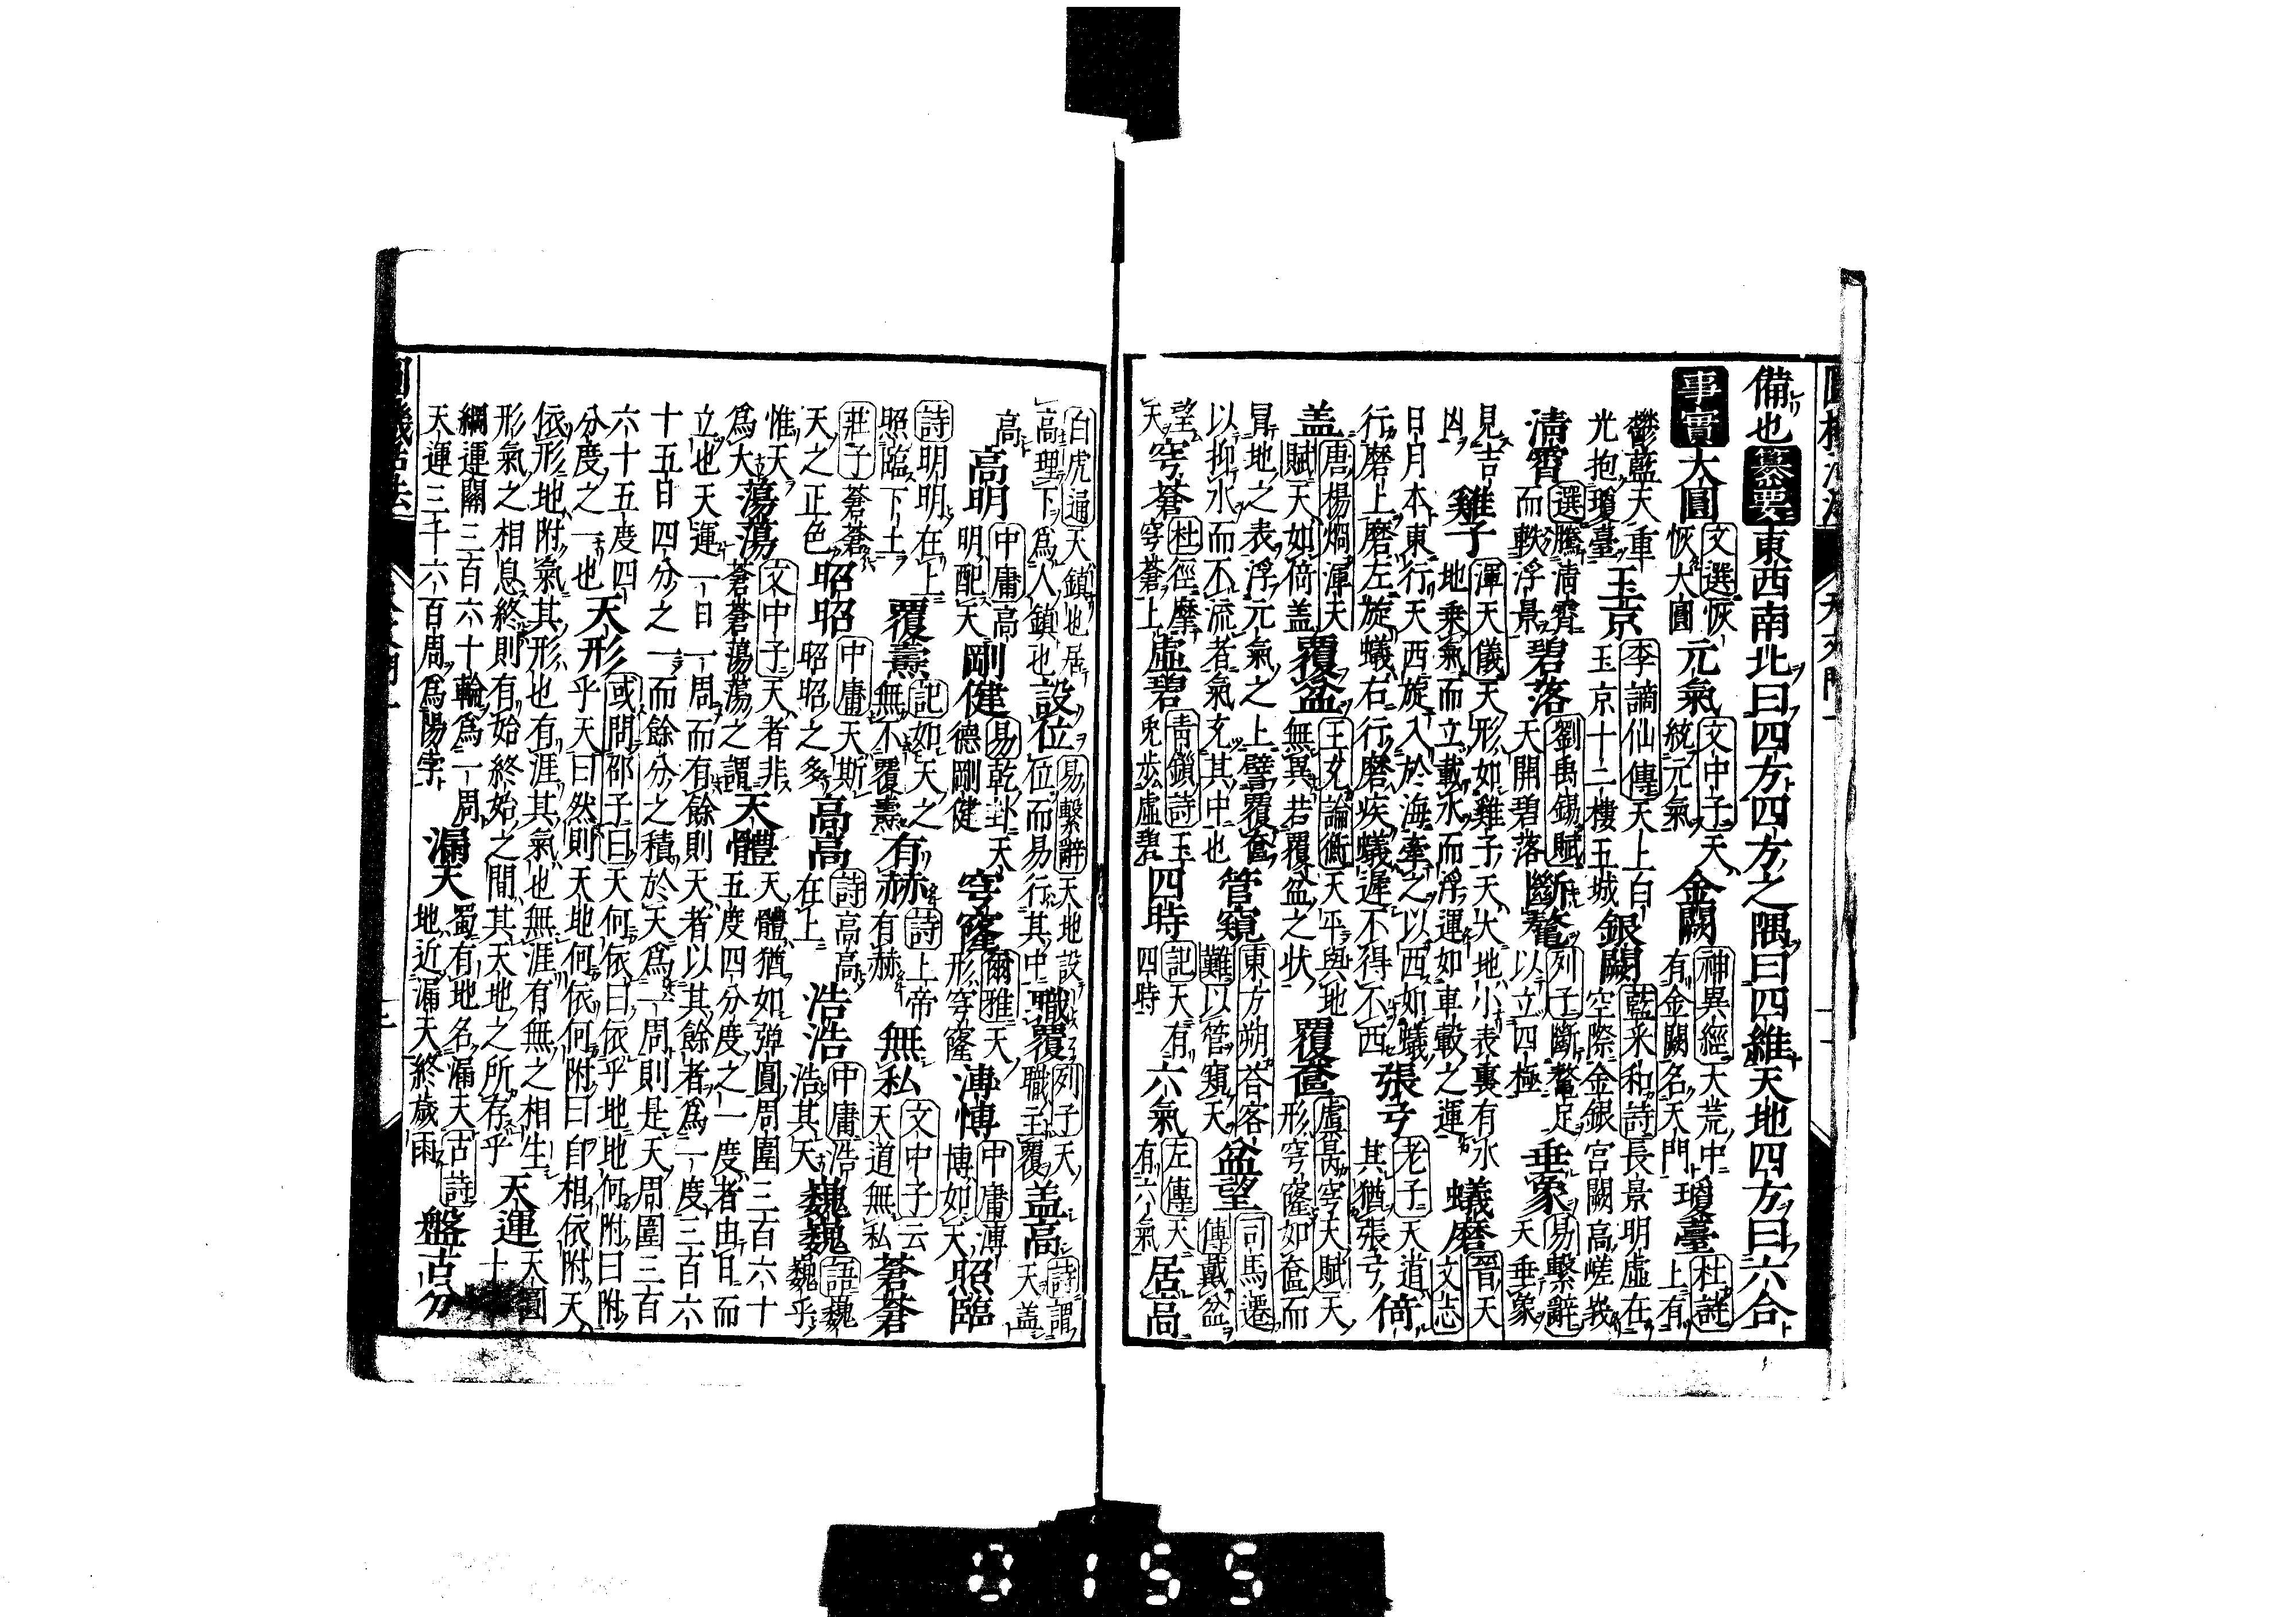 備也纂要東西南北曰四方四方之隅曰四維天地四方曰六合
事實大圓文選恢恢大圓元氣文中子天統元氣金闕神異經天荒中有金闕名天門瓊臺杜詩上有
鬱藍天重光抱瓊臺玉京李謫仙傳天上白玉京十二樓五城銀闕藍采和詩長景明虛在空際金銀宮闕高嵯峩
清霄選騰清霄而軼浮景碧落劉禹錫賦天開碧落斷鰲列子斷鰲足以立四極垂象易繫辭天垂象
見吉凶雞子渾天儀天形如雞子天大地小表裏有水地乗氣而立載水而浮運如車轂之運蟻磨晉天文志
日月本東行天西旋入於海牽之以西如蟻行磨上磨左旋蟻右行磨疾蟻遲不得不西張弓老子天道其猶張弓倚
盖唐楊烱渾天賦天如倚盖覆盆王充論衡天平與地無異若覆盆之状覆奩虞昺穹天賦天形穹窿如奩而
冐地之表浮元氣之上譬覆奩以抑水而不流者氣充其中也管窺東方朔荅客難以管窺天盆望司馬遷傳戴盆
望天穹蒼杜徑摩穹蒼上虛碧青鎖詩玉皃㳟虛碧四時記天有四時六氣左傳天有六氣居高
白虎通天鎮也居高理下為人鎮也設位易繫辭天地設位而易行其中職覆列子天職主覆盖高詩謂天盖
高高明中庸高明配天剛健易乾卦天德剛健穹窿爾雅天形穹窿溥博中庸溥博如天照臨
詩明明在上照臨下土覆燾記如天之無不覆燾有赫詩上帝有赫無私文中子云天道無私蒼蒼
莊子蒼蒼天之正色昭昭中庸天斯昭昭之多高高詩高高在上浩浩中庸浩浩其天巍巍語巍巍乎
惟天為大蕩蕩文中子天者非蒼蒼蕩蕩之謂天體天體猶如弾圓周圍三百六十五度四分度之一度者由日而
立也天運一日一周而有餘則天者以其餘者為一度三百六十五日四分之一而餘分之積於天為一周則是天周圍三百
六十五度四分度之一也天形或問邵子曰天何依曰依乎地地何附曰附乎天曰然則天地何依何附曰自相依附天
依形地附氣其形也有涯其氣也無涯有無之相生形氣之相息終則有始終始之間其天地之所存乎天運天圓十
綱運關三百六十輪為一周天運三千六百周為陽孛漏天蜀有地名漏天古詩地近漏天終歳雨盤古分
0155